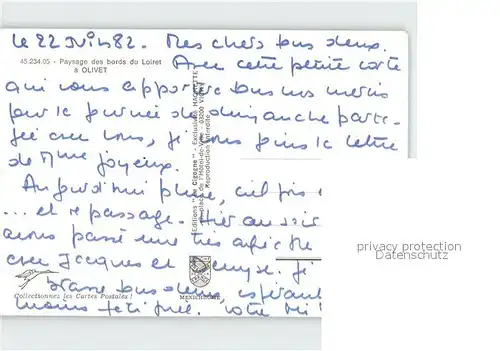 le 22 Juin 82. Mes chers tous deux.
45.234.05 - Paysage des bords du Loiret
à OLIVET
Avec cette petite carte
qui vous apporte tous nos mercis
pour la journée de dimanche parta-
gée avec vous, je vous joins la lettre
de Mme Joyeux.
Aujourd'hui pluie, ciel gris
... et repassage. Hier au soir
avons passé une très
avec Jacques et Denyse. Je
embrasse tous deux, espérant
moins fatiguée. Votre
Editions "La Cigogne" - Exclusivité HACHETTE
place de l'Hôtel-de-Ville - 03200 VICHY
Reproduction interdite
MEXICHROME
Collectionnez les Cartes Postales !
privacy protection
Datenschutz